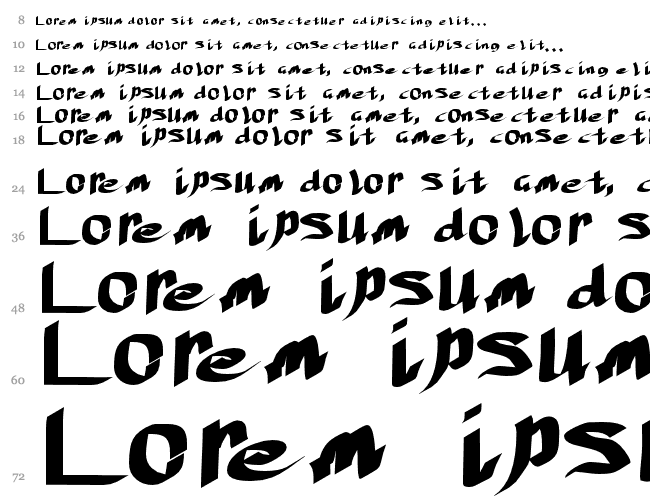 8 Lorem ipsum dolor sit amet, consectetuer adipiscing elit...
10 Lorem ipsum dolor sit amet, consectetuer adipiscing elit...
12 Lorem ipsum dolor sit amet, consectetuer adipiscing eli
14 Lorem ipsum dolor sit amet, consectetuer adipis
16 Lorem ipsum dolor sit amet, consectetuer a
18 Lorem ipsum dolor sit amet, consectet
24 Lorem ipsum dolor sit amet, c
36 Lorem ipsum dolor s
48 Lorem ipsum do
60 Lorem ipsum
72 Lorem ips